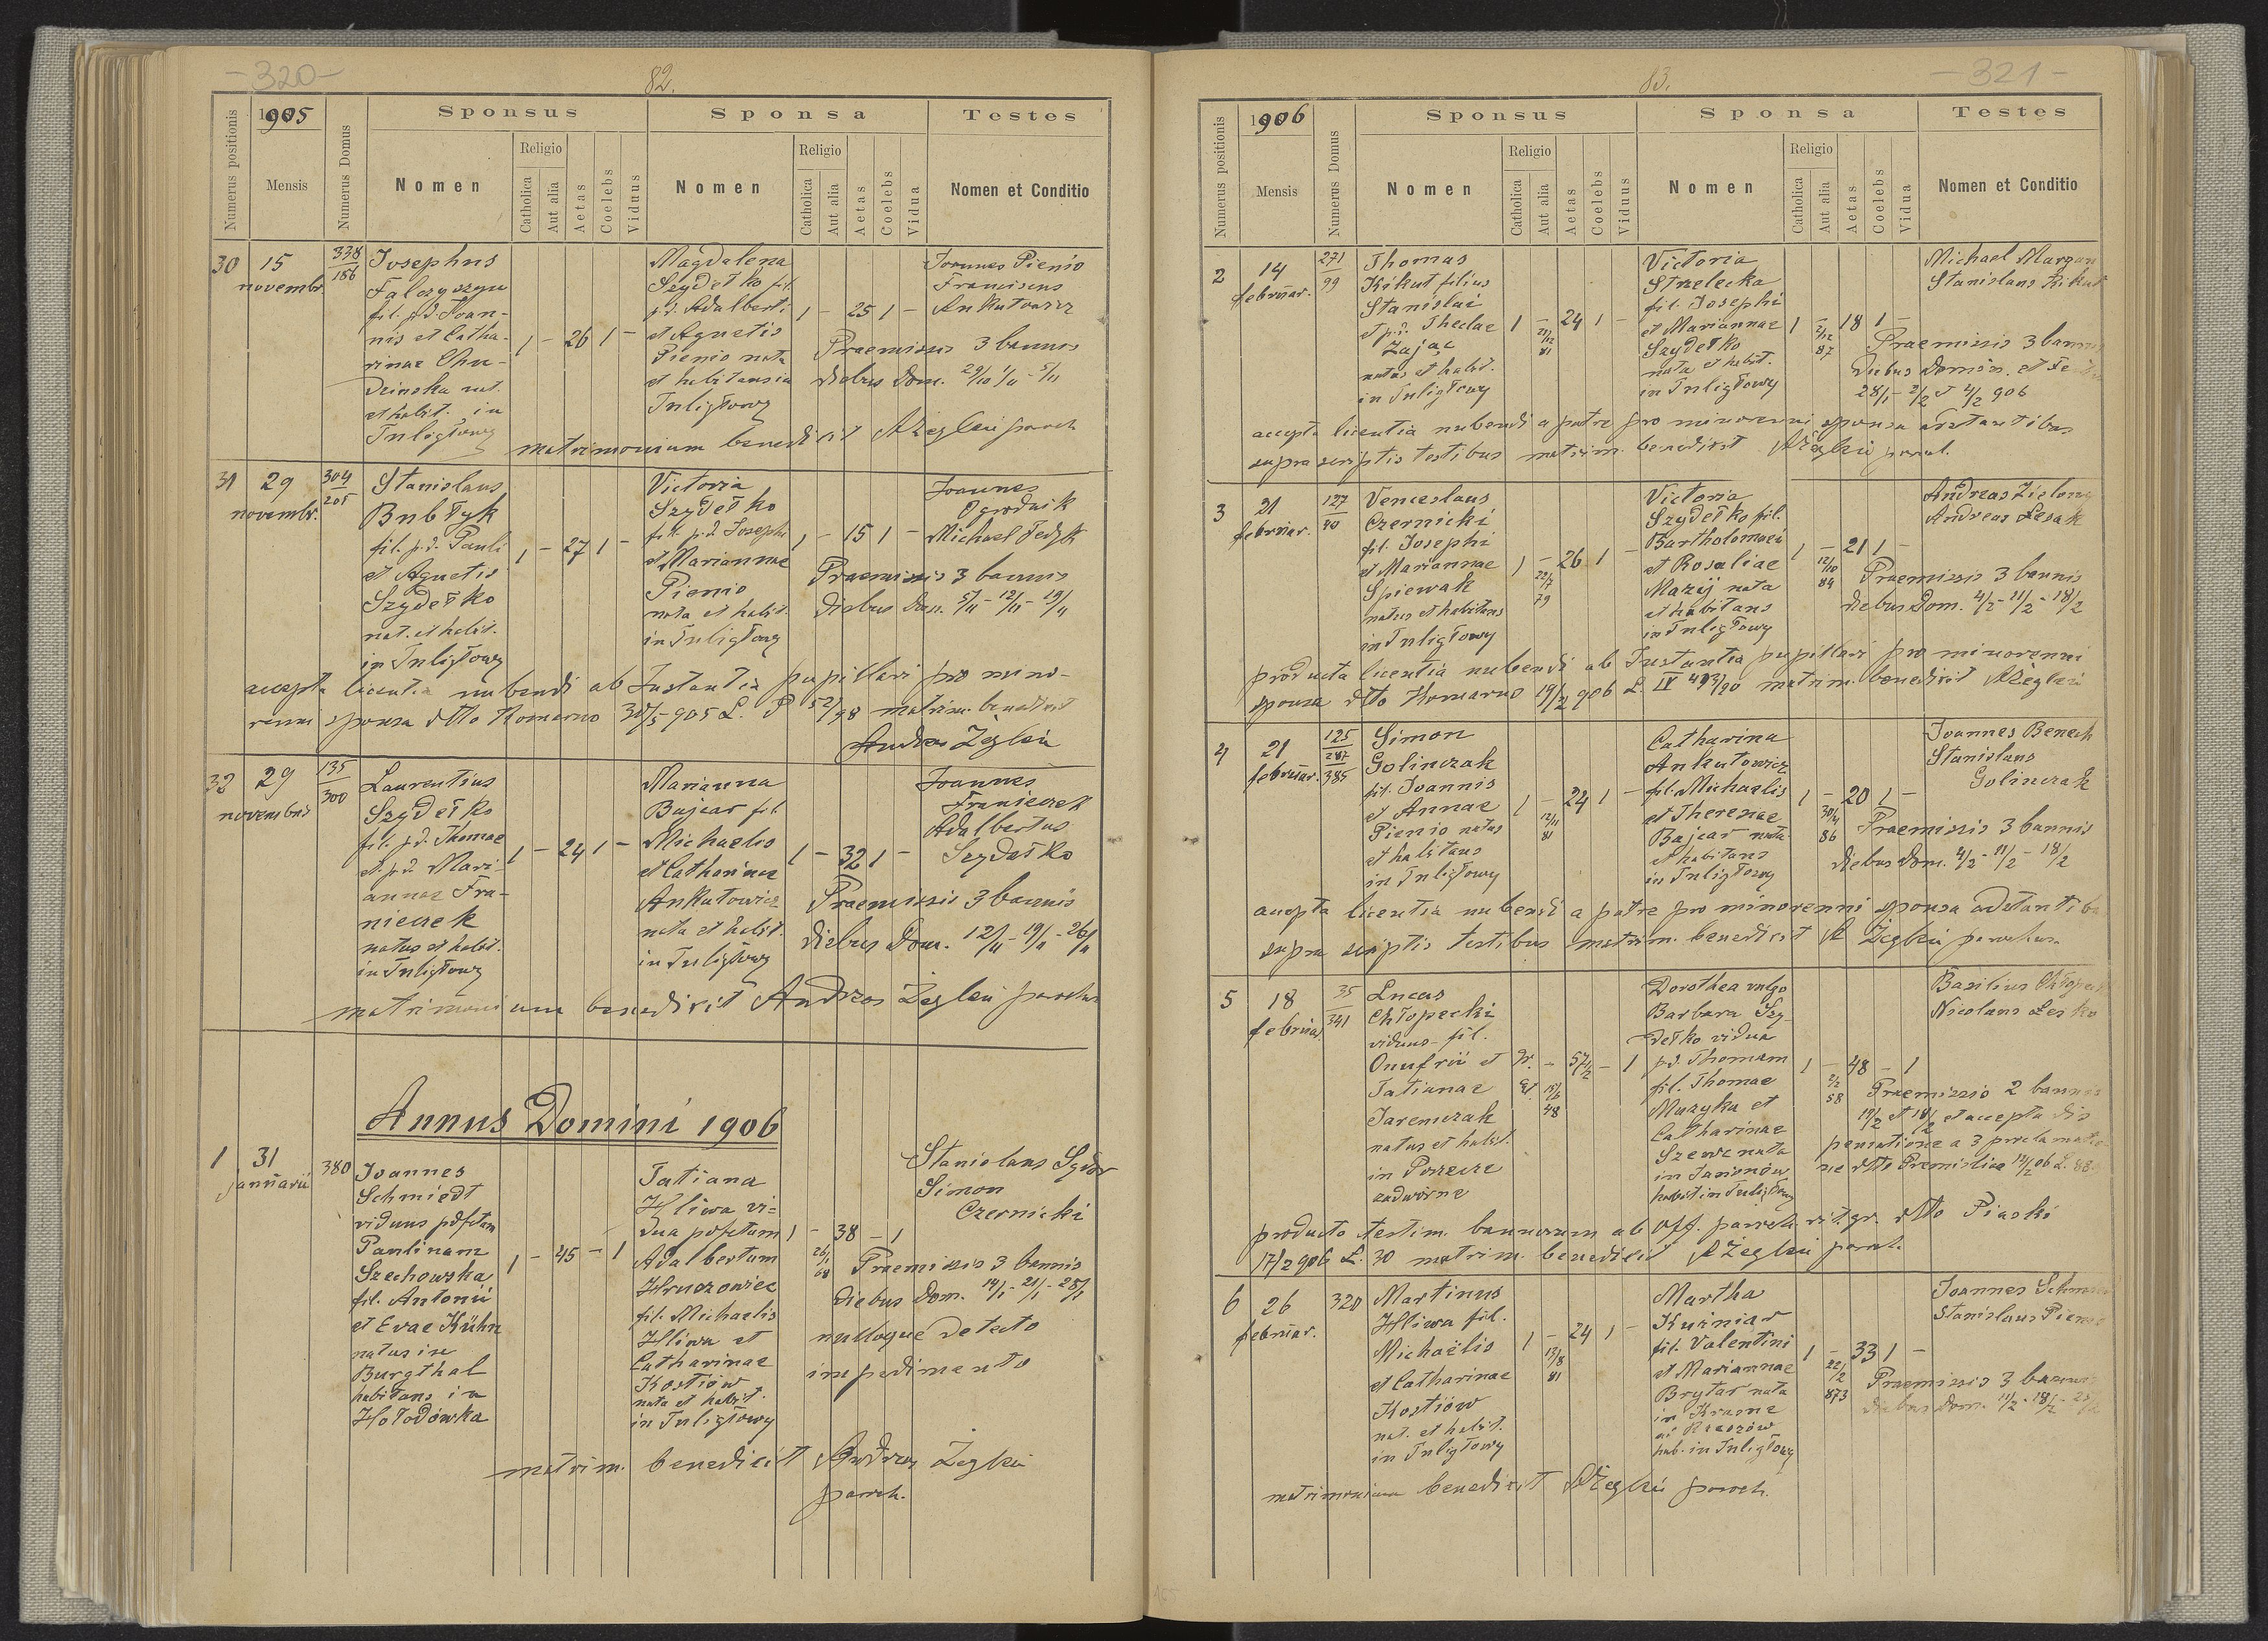 - 320 -
82.
1905
Numerus positionis
Mensis
Numerus Domus
Sponsus
Nomen
Religio
Catholica
Aut alia
Aetas
Coelebs
Viduus
Sponsa
Nomen
Religio
Catholica
Aut alia
Aetas
Coelebs
Vidua
Testes
Nomen et Conditio
30 15 novembr. 338/186
Josephus
Falczyszyn
fil. p.d. Joan-
nis et Catha-
rinae Chu-
dzinska nat.
et habit. in
Tuligłowy
1 - 26 1 -
Magdalena
Szydełko fil.
p.d. Adalberti
et Agnetis
Pienio nata
et habitansin
Tuligłowy
1 - 25 1 -
Joannes Pienio
Franciscus
Ankutowicz
Praemissis 3 bannis
diebus Dom. 29/10 1/11 - 5/11
matrimonium benedixit AŻegleń paroch
31 29 novembr. 304/205
Stanislaus
Bubłyk
fil. p.d. Pauli
et Agnetis
Szydełko
nat. et habit.
in Tuligłowy
1 - 27 1 -
Victoria
Szydełko
fil. p.d. Josephi
et Mariannae
Pienio
nata et habit.
in Tuligłowy
1 - 15 1 -
Joannes
Ogrodnik
Michael Fedyk
Praemissis 3 bannis
diebus Dom. 5/11 - 12/11 - 19/11
accepta licentia nubendi ab Instantia pupillari pro mino-
renni sponsa dtto Komarno 30/5 905 L. P 52/98 matrim. benedixit
Andreas Żegleń
32 29 novembris 135/300
Laurentius
Szydełko
fil. p.d. Thomae
et p.d. Mari-
annae Fra-
nieczek
natus et habit.
in Tuligłowy
1 - 24 1 -
Marianna
Bajcar fil.
Michaelis
et Catharinae
Ankutowicz
nata et habit.
in Tuligłowy
1 - 32 1 -
Joannes
Franieczek
Adalbertus
Szydełko
Praemissis 3 bannis
diebus Dom. 12/11 - 19/11 - 26/11
matrimonium benedixit Andreas Żegleń parochus
Annus Domini 1906
1 31 januarii 380
Joannes
Schmiedt
viduus p.defctam
Paulinam
Szechowska
fil. Antonii
et Evae Kühn
natus in
Burgthal
habitans in
Hołodówka
1 - 45 - 1
Tatiana
Hliwa vi=
dua p.defctum
Adalbertum
Hruszowiec
fil. Michaelis
Hliwa et
Catharinae
Kostiów
nata et habit.
in Tuligłowy
1 - 38 - 1
26/1 68
Stanislaus
Simon
Czernicki
Praemissis 3 bannis
diebus Dom. 14/1 - 21/1 - 28/1
nulloque detecto
impedimento
matrim. benedixit Andreas Żegleń
paroch.
- 321 -
83.
1906
Numerus positionis
Mensis
Numerus Domus
Sponsus
Nomen
Religio
Catholica
Aut alia
Aetas
Coelebs
Viduus
Sponsa
Nomen
Religio
Catholica
Aut alia
Aetas
Coelebs
Vidua
Testes
Nomen et Conditio
2 14 februar. 271/99
Thomas
Kikut filius
Stanislai
et p.d. Theclae
Zając
natus et habit.
in Tuligłowy
1 - 24 1 -
21/12 81
Victoria
Strzelecka
fil. Josephi
et Mariannae
Szydełko
nata et habit.
in Tuligłowy
1 - 18 1 -
2/12 87
Michael
Stanislaus Kikut
Praemissis 3 bannis
diebus Domin. et
28/1 - 2/2 et 4/2 906
accepta licentia nubendi a patre pro minorenni sponsa adstantibus
supra scriptis testibus matrim. benedixit AŻegleń paroch.
3 21 februar. 127/80
Venceslaus
Czernicki
fil. Josephi
et Mariannae
Spiewak
natus et habitans
in Tuligłowy
1 - 26 1 -
22/7 79
Victoria
Szydełko fil.
Bartholomaei
et Rosaliae
Mazij nata
et habitans
in Tuligłowy
1 - 21 1 -
12/10 84
Andreas
Andreas Lesak
Praemissis 3 bannis
diebus Dom. 4/2 - 11/2 - 18/2
producta licentia nubendi ab Instantia pupillari pro minorenni
sponsa dtto Komarno 19/2 906 L. IV 493/90 matrim. benedixit AŻegleń
4 21 februar. 125/287/385
Simon
Golinczak
fil. Joannis
et Annae
Pienio natus
et habitans
in Tuligłowy
1 - 24 1 -
12/11 81
Catharina
Ankutowicz
fil. Michaelis
et Theresiae
Bajcar nata
et habitans
in Tuligłowy
1 - 20 1 -
30/4 86
Joannes Benech
Stanislaus
Golinczak
Praemissis 3 bannis
diebus Dom. 4/2 - 11/2 - 18/2
accepta licentia nubendi a patre pro minorenni sponsa adstantibus
supra scriptis testibus matrim. benedixit A Żegleń parochus
5 18 februar. 35/341
Lucas
Chłopecki
viduus fil.
Onufrii et
Tatianae
Jaremczak
natus et habit.
in Porzecze
zadwórne
gr. ct. - 57 1/2 - 1
15/6 48
Dorothea vulgo
Barbara Szy-
dełko vidua
p.d. Thomam
fil. Thomae
Muzyka et
Catharinae
Szewc nata
in
habit in Tuligłowy
1 - 48 - 1
2/2 58
Basilius
Nicolaus Lesko
Praemissis 2 bannis
11/2 et 18/2 et accepta dis
pensatione a 3 proclamatio
ne dtto Premisliae 14/2 06 L.
producto testim. bannorum ab Off. paroch. rit. gr. dtto Piaski
17/2 906 L. 30 matrim. benedixit AŻegleń paroch.
6 26 februar. 320
Martinus
Hliwa fil.
Michaëlis
et Catharinae
Kostiów
nat. et habit.
in Tuligłowy
1 - 24 1 -
13/8 81
Martha
Kuźniar
fil. Valentini
et Mariannae
Brytar nata
in Krasne
ad Rzeszów
hab. in Tuligłowy
1 - 33 1 -
22/2 873
Joannes
Stanislaus
Praemissis 3 bannis
diebus Dom. 11/2 - 18/2 -
matrimonium benedixit AŻegleń paroch.